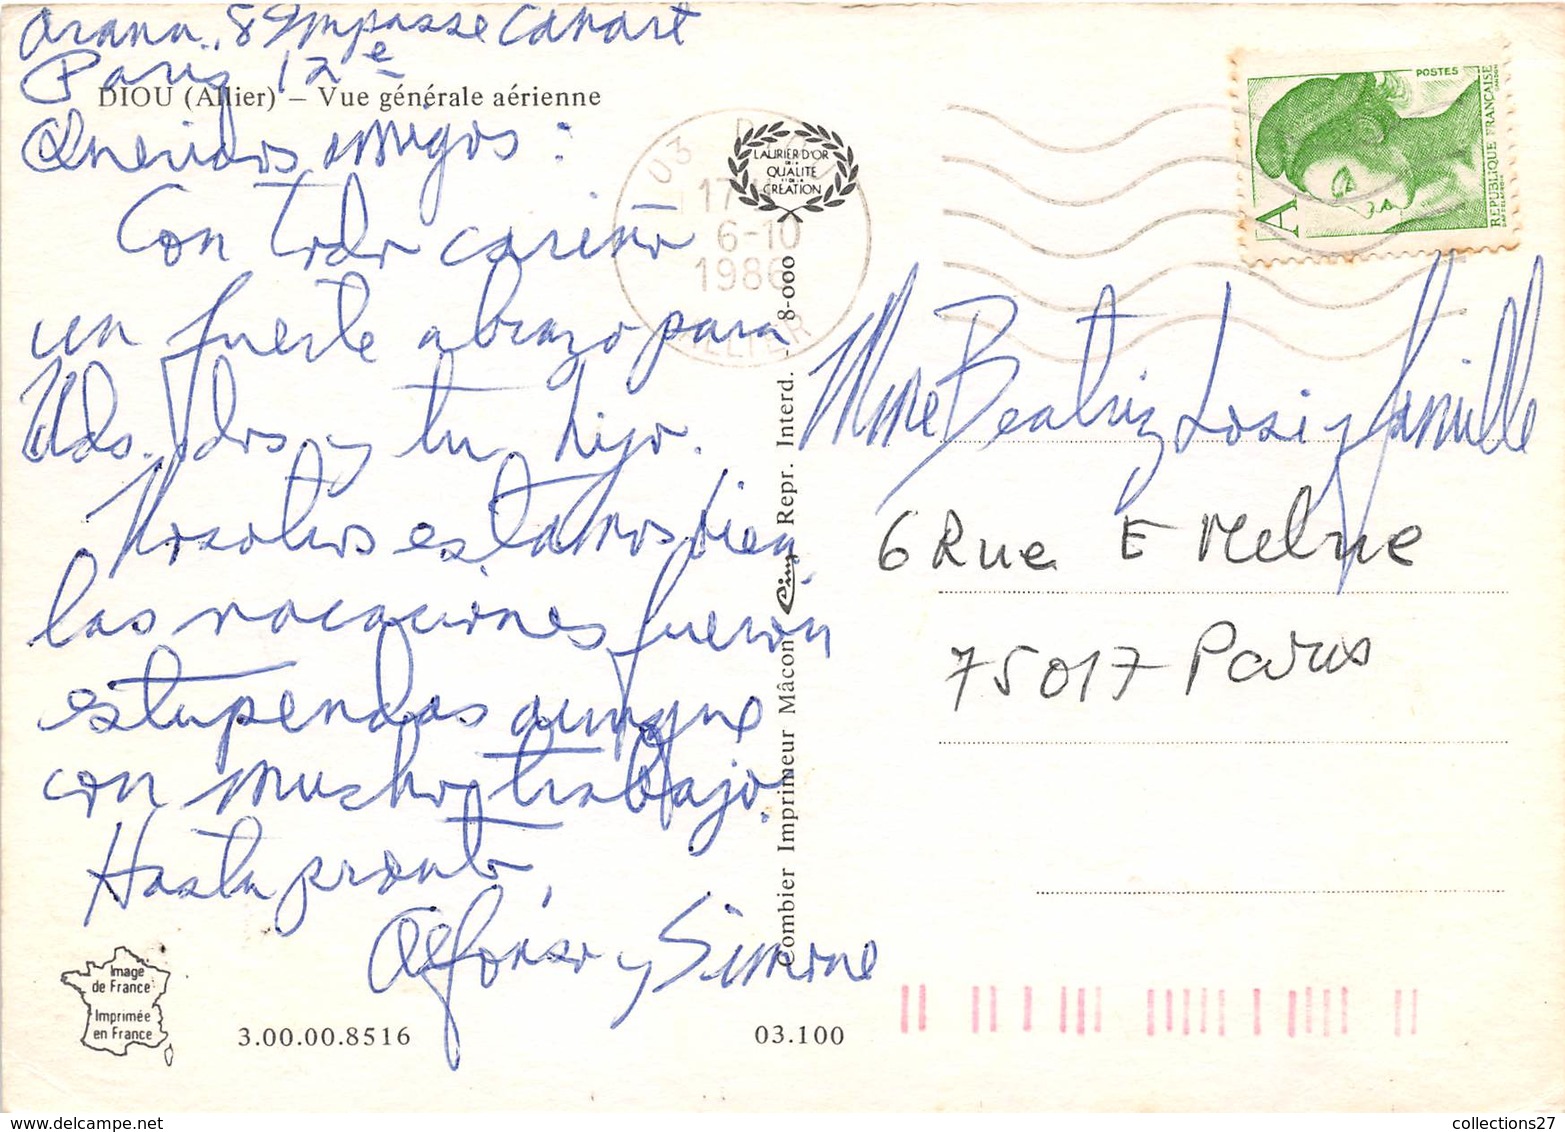 Arana, 8 Impasse Canart
Paris 12e
DIOU (Allier) – Vue générale aérienne
Queridos amigos :
Con todo cariño
un fuerte abrazo para
Uds. dos y tu hijo.
Nosotros estamos bien
las vacaciones fueron
estupendas aunque
con mucho trabajo.
Hasta pronto,
Alfonso y Simone
Image
de France
Imprimée
en France
3.00.00.8516
03.100
Combier Imprimeur Mâcon Cim Repr. Interd. - 8-000
LAURIER D'OR
DE LA
QUALITÉ
ET DE LA
CRÉATION
03 D
17
6-10
1986
ALLIER
POSTES
A
REPUBLIQUE FRANÇAISE
Mme Beatriz Losi y famille
6 Rue E
75017 Paris
collections27